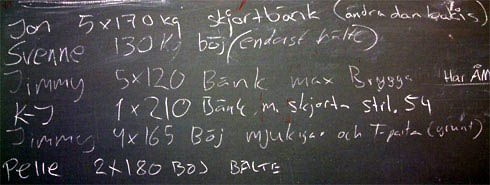 Jon 5x170 kg skjortbänk (andra dan bakis)
Svenne 130 kg böj (endast bälte)
Jimmy 5x120 Bänk max Brygga Har ÅM
K-J 1x210 Bänk m. skjorta strl. 54
Jimmy 4x165 Böj mjukisar och T-paita (grunt)
Pelle 2x180 BÖJ BÄLTE